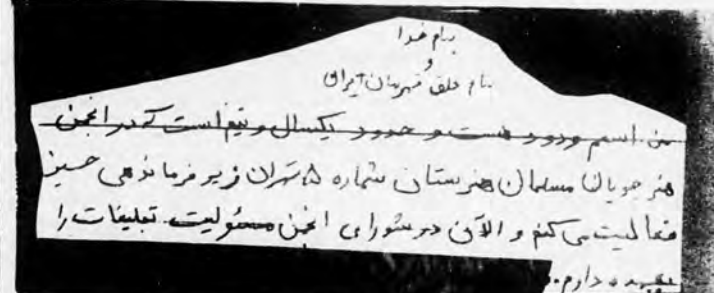 بنام خدا
و
بنام خلق قهرمان ایران
من اسمم ودود هست و حدود یکسال و نیم است که در انجمن
هنرجویان مسلمان هنرستان شماره ۵ تهران زیر فرماندهی حسین
فعالیت می کنم و الآن در شورای انجمن مسئولیت تبلیغات را
بعهده دارم.